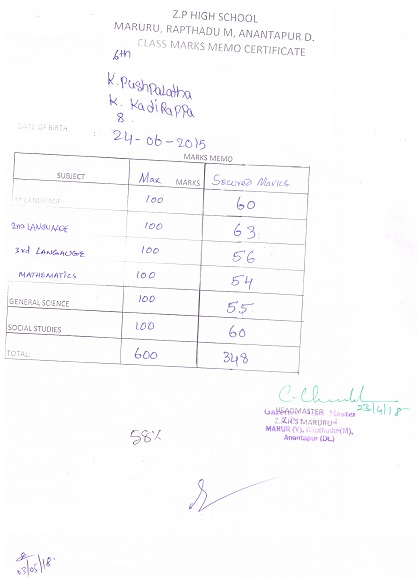 Z.P HIGH SCHOOL
MARURU, RAPTHADU M, ANANTAPUR D.
CLASS MARKS MEMO CERTIFICATE
6th
K. Pushpalatha
K. Kadirappa
8
DATE OF BIRTH : 24-06-2015
MARKS MEMO
SUBJECT Max MARKS Secured Marks
LANGUAGE 100 60
2nd LANGUAGE 100 63
3rd LANGAUGE 100 56
MATHEMATICS 100 54
GENERAL SCIENCE 100 55
SOCIAL STUDIES 100 60
TOTAL: 600 348
23/4/18
HEADMASTER
Z.P.H.S MARURU
MARUR (V), Rapthadu (M),
Anantapur (Dt.)
58%
03/05/18